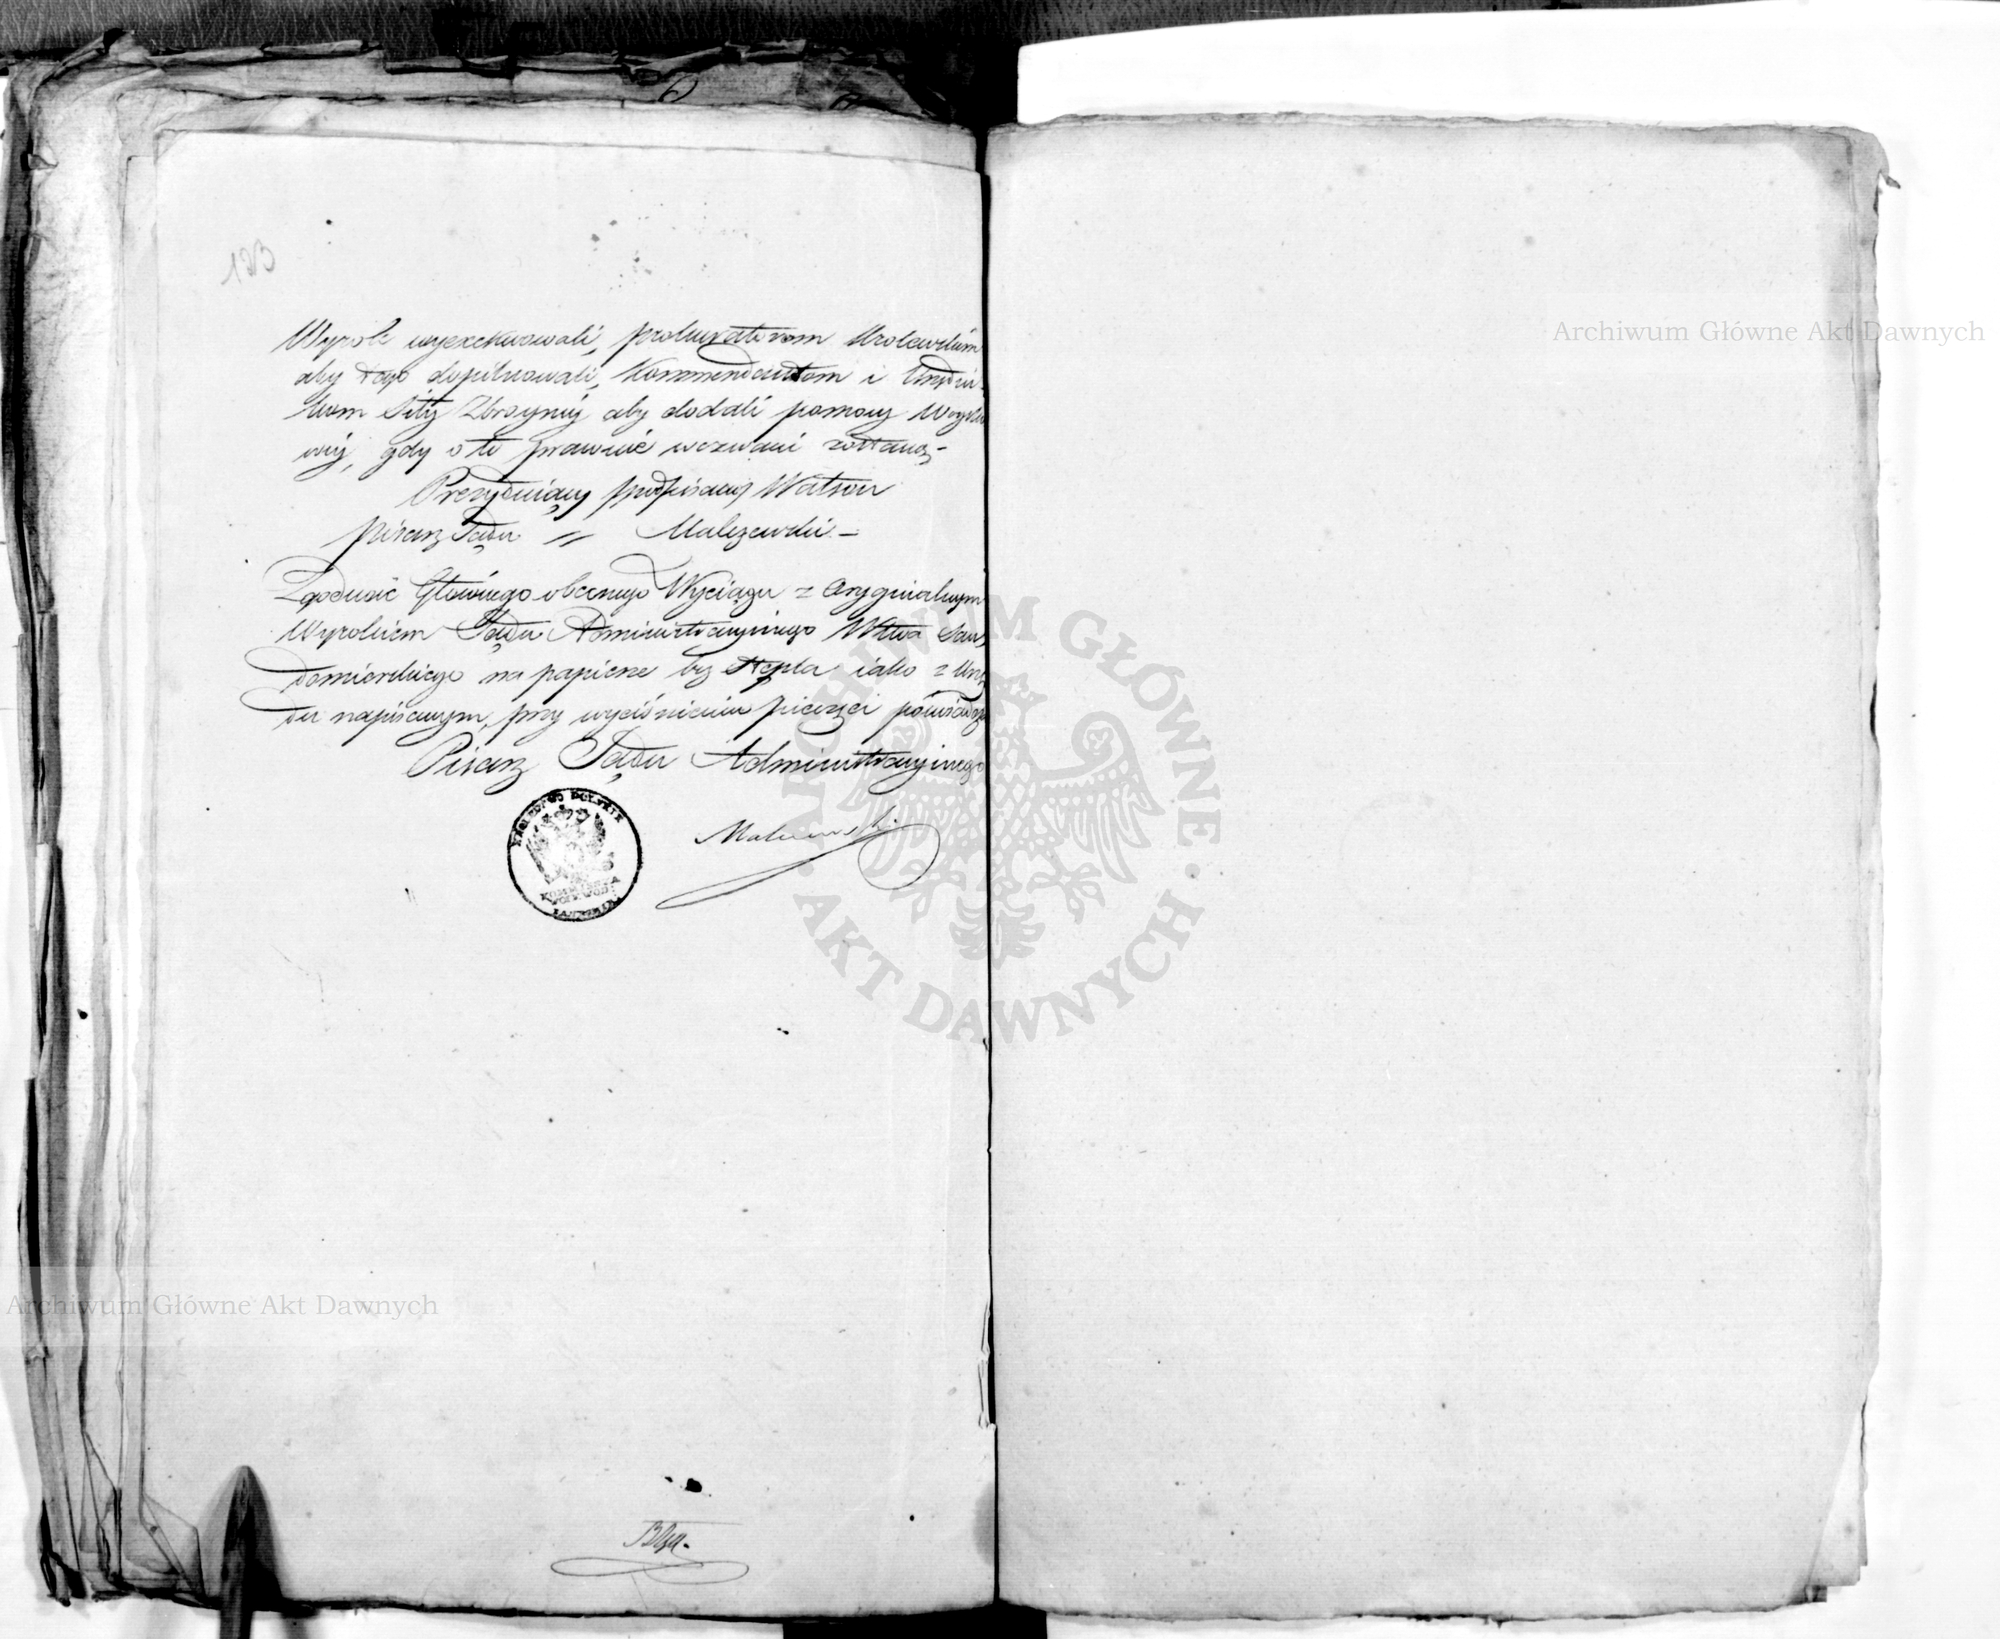 123
Wyrok wyexekwowali, prokuratorom Krolewskim
aby tego dopilnowali, Kommendantom i Urzędni-
kom Siły Zbroyney aby dodali pomocy Woysko
wey, gdy o to prawnie wezwani zostaną.-
Prezyduiący podpisany Watson
Pisarz Sądu // Malczewski -
Zgodność Głównego obecnego Wyciągu z oryginalnym
Wyrokiem Sądu Administracyinego Wdztwa San,
domierskiego na papierze bez stępla iako z Urzę
du napisanym, przy wyciśnieniu pieczęci poświadcza
Pisarz Sądu Administracyinego
Malczewski
KROLESTWO POLSKIE
KOMMISSYA
WOIEWOD:
SANDOMIR:
ARCHIWUM GŁÓWNE · AKT DAWNYCH ·
Archiwum Główne Akt Dawnych
Archiwum Główne Akt Dawnych